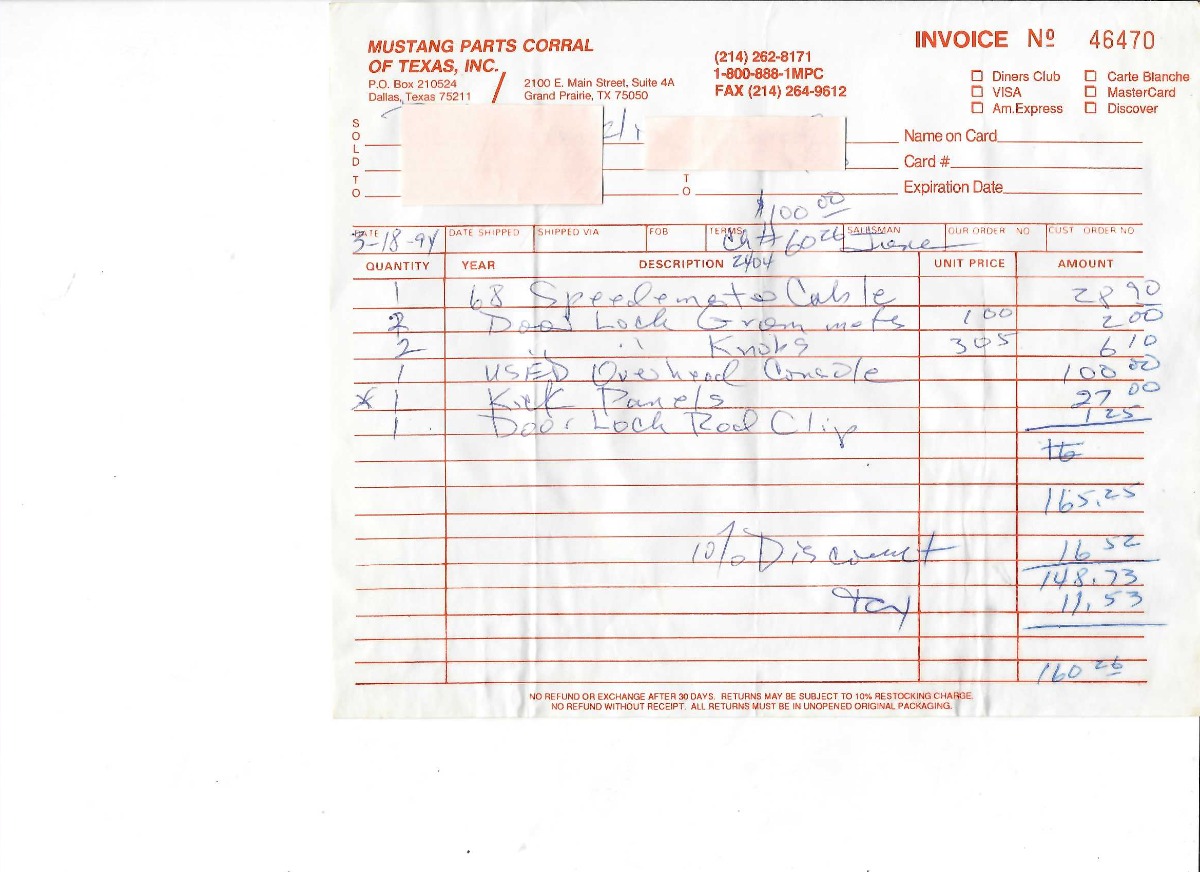 MUSTANG PARTS CORRAL
OF TEXAS, INC.
P.O. Box 210524
Dallas, Texas 75211
2100 E. Main Street, Suite 4A
Grand Prairie, TX 75050
(214) 262-8171
1-800-888-1MPC
FAX (214) 264-9612
INVOICE Nº 46470
Diners Club Carte Blanche
VISA MasterCard
Am.Express Discover
SOLD TO
TO
Name on Card
Card #
Expiration Date
$100 00
DATE DATE SHIPPED SHIPPED VIA FOB TERMS SALESMAN OUR ORDER NO CUST ORDER NO
3-18-94 Ch # 60 26
2404
QUANTITY YEAR DESCRIPTION UNIT PRICE AMOUNT
1 68 Speedemoto Cable 28 90
2 Door Lock Grommets 1 00 2 00
2 " " Knobs 3 05 6 10
1 USED Overhead Console 100 00
* 1 Kick Panels 27 00
1 Door Lock Rod Clip 1 25
16
165.25
10% Discount 16 52
148.73
tax 11.53
160 26
NO REFUND OR EXCHANGE AFTER 30 DAYS. RETURNS MAY BE SUBJECT TO 10% RESTOCKING CHARGE.
NO REFUND WITHOUT RECEIPT. ALL RETURNS MUST BE IN UNOPENED ORIGINAL PACKAGING.